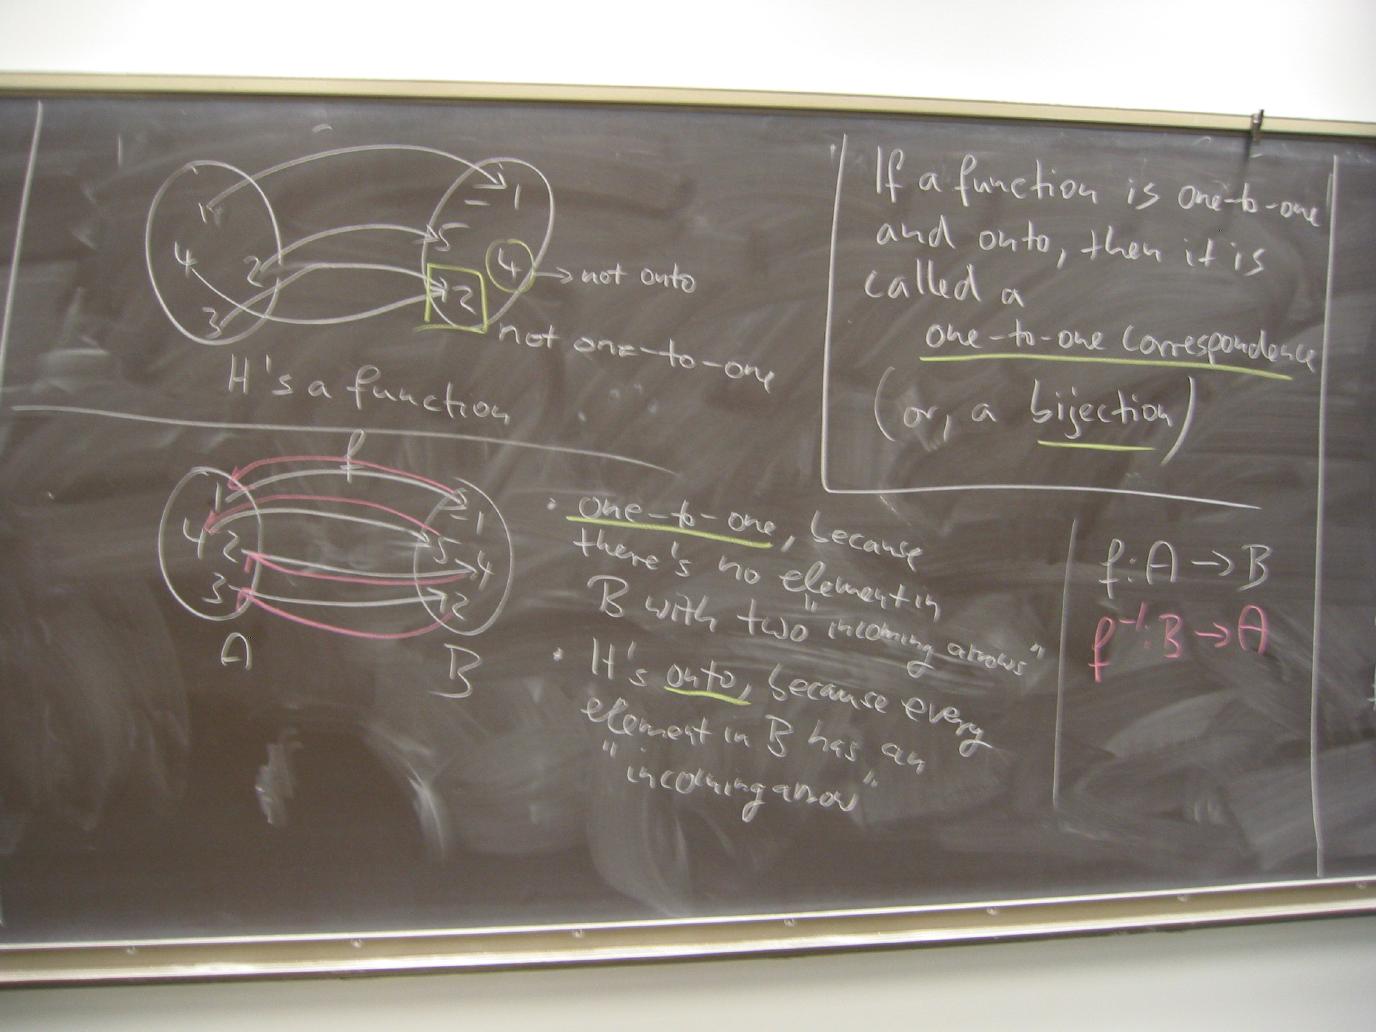 1
4
2
3
-1
5
4
2
→ not onto
not one-to-one
It's a function
f
1
4
2
3
-1
5
4
2
A
B
If a function is one-to-one
and onto, then it is
called a
one-to-one correspondence
(or, a bijection)
• one-to-one, because
there's no element in
B with two "incoming arrows"
• It's onto, because every
element in B has an
"incoming arrow"
f: A → B
f⁻¹: B → A